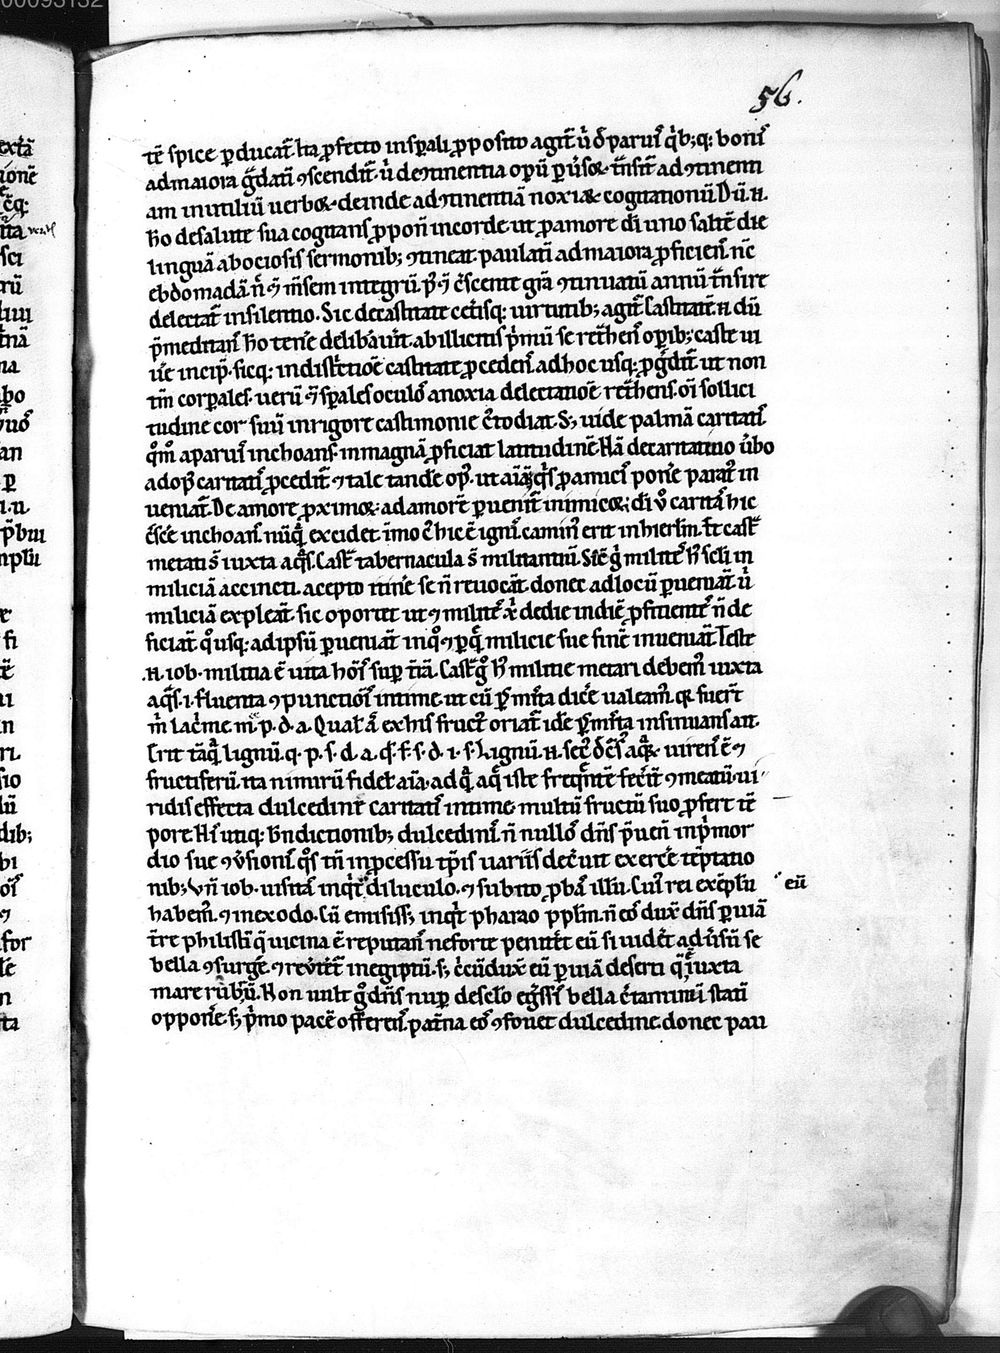 56.
tē spice ꝑducat̄. Ita ꝓfecto in sp̄ali ꝓposito agit̄ ù d̄ paruis̄ q̇b; q: bonis̄
ad maiora g̈datī ꝯscendit̄. ù de ꝯtinentia opū ꝑuꝰsoꝝ. t̄nsit̄ ad ꝯtinenti
am inutiliū uerboꝝ. deinde ad ꝯtinentiā noxiaꝝ cogitationū. Dū .n.
ho de salute sua cogitans ꝓpon̄ in corde. ut ꝓ amore dī uno saltē die
linguā ab ociosis sermonib; ꝯtineat. paulatī ad maiora ꝓficiens̄ n̄c
ebdomadā. n̄c ꝯ m̄sem integrū. pꝰ ꝯ c̄scente gr̄a ꝯtinuatū annū t̄nsire
delectat̄ in silentio. Sic de castitate cet̄isq: uirtutib; agit̄. Castitatē .n. dū
p̄meditans̄ ho tene delibauīt. ab illicitis p̄mū se ret̄hens̄ opib; caste ui
ue incip̄. sicq: indisc̄tioē castitate ꝓcedens̄ adhoc usq: ꝓg̈dit̄. ut non
tm̄ corpales. uerū ꝯ sp̄ales oculos̄ a noxia delectatioē ret̄hens. oī sollici
tudine cor suū in rigore castimonie c̄todiat. S; uide palmā caritatis̄
qm̄ a paruis̄ inchoans. in magnā ꝓficiat latitudinē. Nā de caritatiuo ùbo
ad opꝰ caritatis̄ ꝓcedit̄. ꝯ tale tande opꝰ. ut aīā q̇s̄ ꝓ amicis̄ pone paratꝰ in
ueniat̄. De amore ꝓximoꝝ. ad amorē ꝑuenit̄ inimicoꝝ. dī ù caritās hic
c̄sce inchoans̄. nūq̄ excidet. īmo c̄ hic ē ignis̄. caminꝰ erit in hierl̄m. Et cast̄
metati s̄ iuxta aq̄s. Cast̄ tabernacula s̄ militantiū. Sic̄ g̊ militēs hꝰ sc̄li in
miliciā accincti. accepto itine se n̄ reuocāt. donec ad locū ꝑueniāt ù
miliciā expleāt. sic oportet ut ꝯ militēs x̄ de die in diē ꝓficientēs n̄ de
ficiat̄ q̊usq: ad ipsū ꝑueniat̄ in q̊ ꝯ ꝑ q̄ milicie sue finē inueniat̄. Teste
.n. iob. militia ē uita hois̄ sup t̄rā. Cast̄ g̊ hꝰ militie metari debem̄ iuxta
aq̄s .i. fluenta ꝯpunctiois̄ intime. ut cū ꝓph̄ta dic̄e ualeam̄. q fuer̄t
m̄ lac̄me m̄ p. d. a. Qual̄ ā ex his fructꝰ oriat̄ idē ꝓph̄ta insinuans ait.
Erit tāq̄ lignū. q. p. s. d. a. q̄. f. s. d. i. s. Lignū .n. secꝰ dc̄s̄ aq̄ꝝ. uirens̄ ē ꝯ
fructiferū. ita nimirū fidel̄ aīa. ad q̄ aq̄ iste freqn̄tē fec̄it ꝯmeatū. ui
ridis effecta dulcedinē caritatis̄ intime. multū fructū suo ꝓfert tē
pore. His̄ utiq: bn̄dictionib; dulcedinis̄ n̄ nullos̄ dn̄s p̄uen̄ in pͥmor
dio sue ꝯùsionis̄. q̊s tn̄ in ꝓcessu tp̄is uariis̄ dec̄uit exerc̄e tēptatio
nib; Vn̄ iob. uisitas̄ inq̇t diluculo. ꝯ subito ꝓbas̄ illū. Cuiꝰ rei exēplū
habem̄. ꝯ in exodo. Cū emisiss; inq̇t pharao pp̄lm. n̄ eos̄ dux̄ dn̄s ꝑ uiā
eū
t̄re philistī q̄ uicina ē. reputans̄ ne forte penit̄et eū si uidēt aduꝰsū se
bella ꝯsurge. ꝯ reùtet̄ in egiptū. s; c̄cūdux̄ eū ꝑ uiā deserti q̄ ē iuxta
mare rubrū. Non uult g̊ dn̄s nup de sc̄lo eg̈ssis̄ bella c̄taminū statī
oppone. s; pͥmo pacē offerens̄. pat̄na eos̄ ꝯfouet dulcedine. donec pau